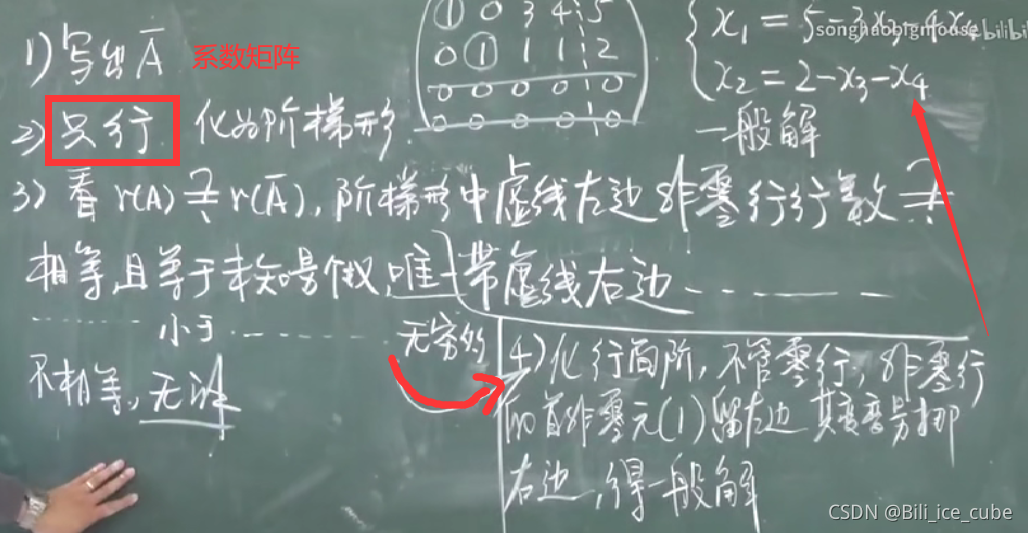 1) 写出Ā 系数矩阵
2) 只行 化为阶梯形.
① 0 3 4 5
0 ① 1 1 2
0 0 0 0 0
0 0 0 0 0
x₁ = 5-3x₃-4x₄
x₂ = 2-x₃-x₄
一般解
songhaobigmouse bilibili
3) 看 r(A) ≟ r(Ā), 阶梯形中虚线左边非零行行数 ≟
相等,且等于未知量个数,唯一 带虚线右边
小于 无穷多
不相等,无解
4) 化行简阶,不管零行,非零行
的首非零元(1)留左边 其变量挪
右边,得一般解
CSDN @Bili_ice_cube